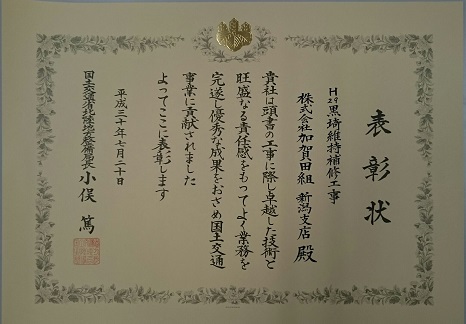 表彰状
H29黒埼維持補修工事
株式会社加賀田組 新潟支店 殿
貴社は頭書の工事に際し卓越した技術と
旺盛なる責任感をもってよく業務を
完遂し優秀な成果をおさめ国土交通
事業に貢献されました
よってここに表彰します
平成三十年七月二十日
国土交通省北陸地方整備局長 小俣 篤